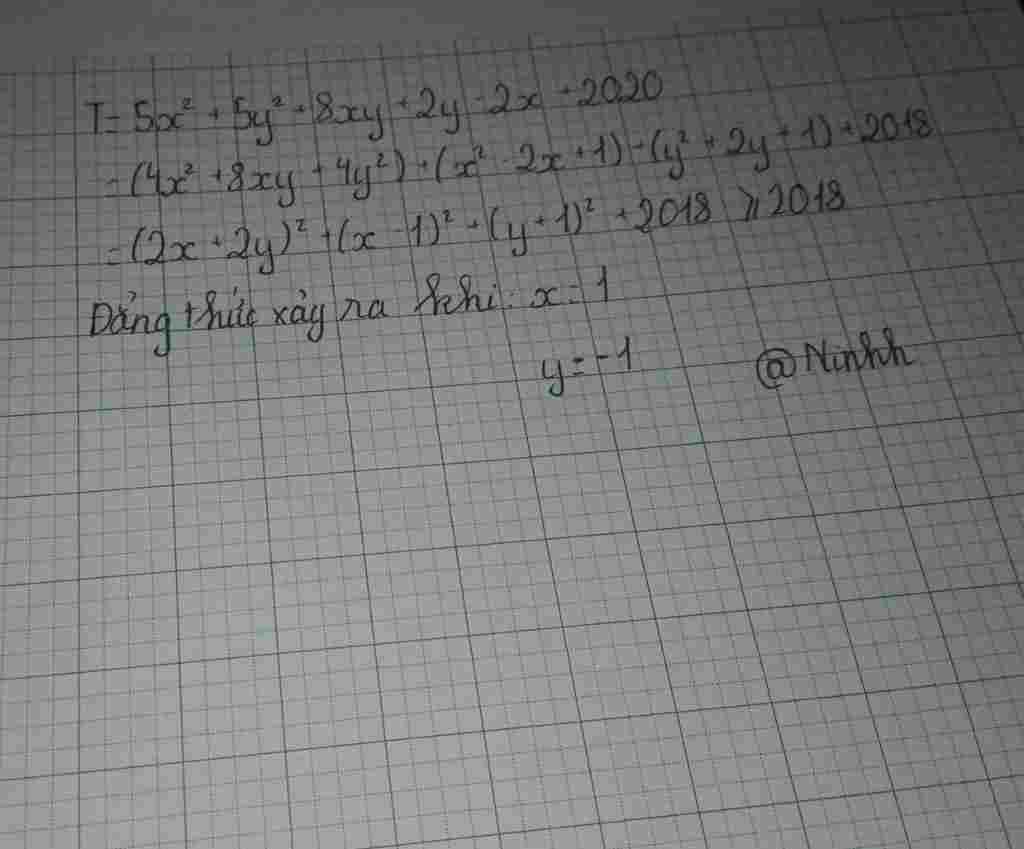 T = 5x² + 5y² + 8xy + 2y - 2x + 2020
= (4x² + 8xy + 4y²) + (x² - 2x + 1) + (y² + 2y + 1) + 2018
= (2x + 2y)² + (x - 1)² + (y + 1)² + 2018 ⩾ 2018
Đẳng thức xảy ra khi: x = 1
y = -1 @Ninhh